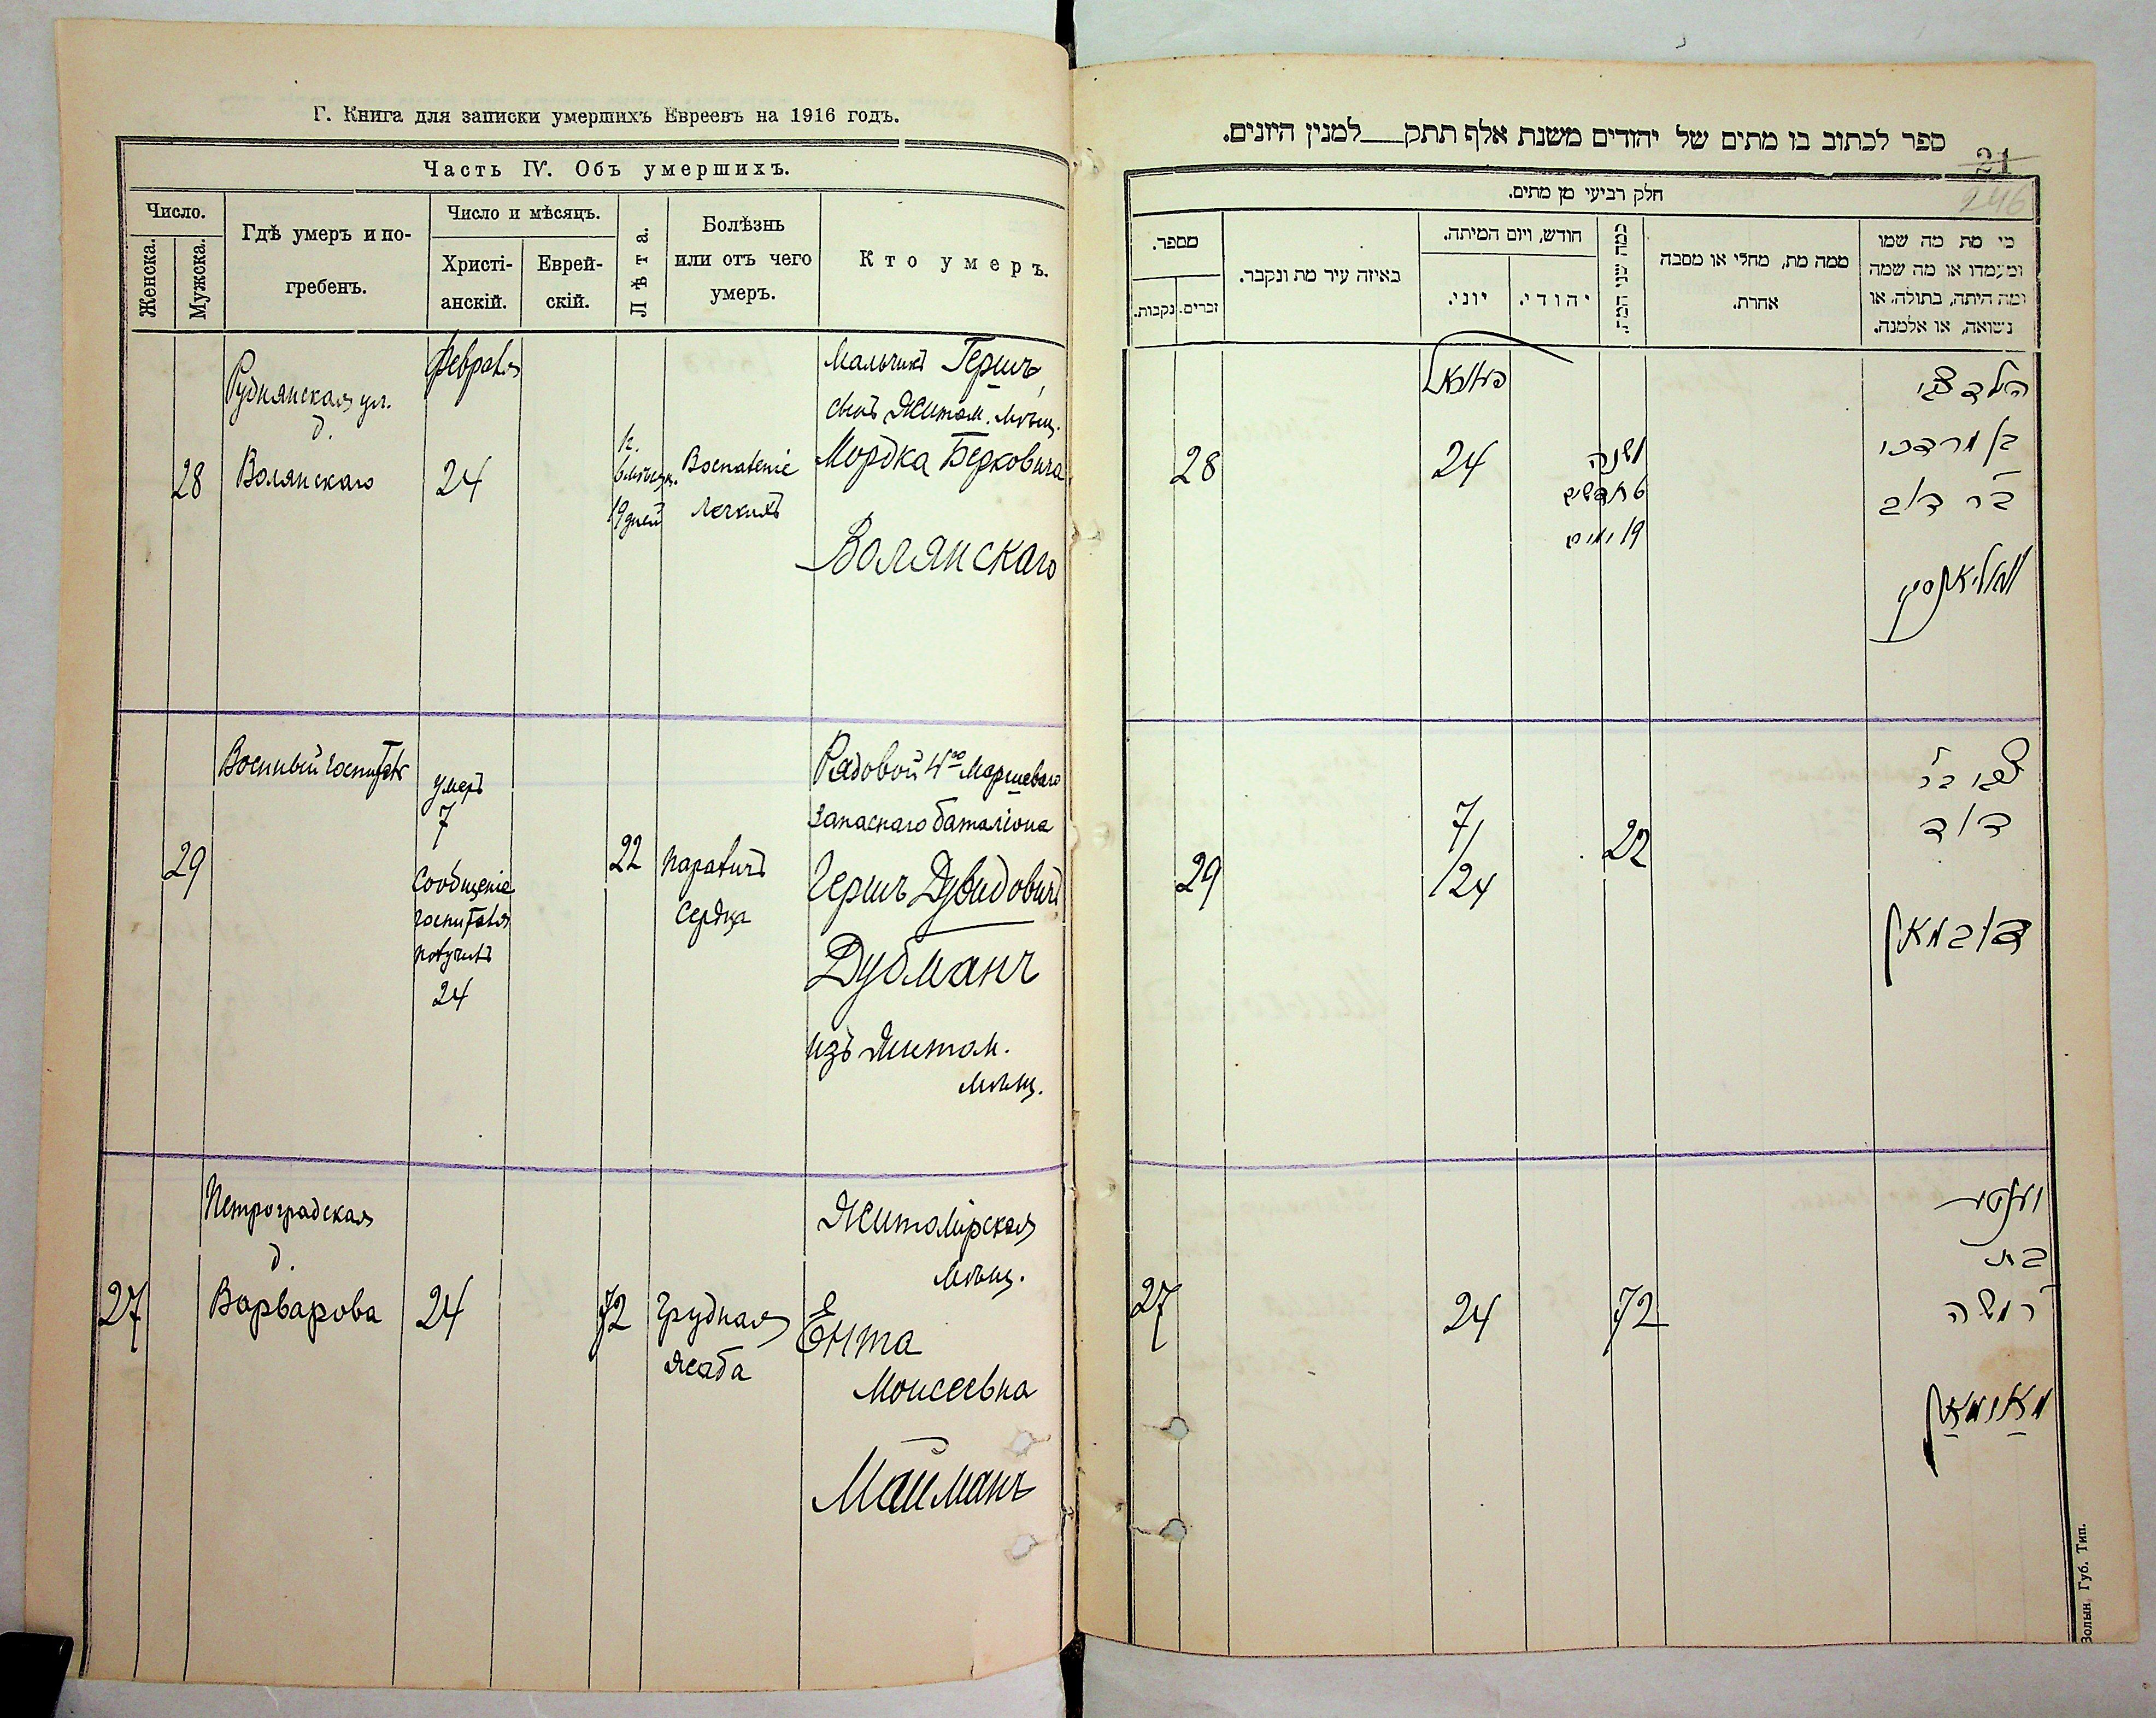 Г. Книга для записки умершихъ Евреевъ на 1916 годъ.
Часть IV. Объ умершихъ.
Число.
Женска.
Мужска.
Гдѣ умеръ и по-
гребенъ.
Число и мѣсяцъ.
Христі-
анскій.
Еврей-
скій.
Лѣта.
Болѣзнь
или отъ чего
умеръ.
Кто умеръ.
28
Руднянская ул.
д.
Волянскаго
февраля
24
19 дней
Воспаленіе
легкихъ
Мальчикъ Гершъ,
сынъ Житом. мѣщ.
Мордка Берковича
Волянскаго
29
Военный госпиталь
умеръ
7
Сообщеніе
госпиталя
получилъ
24
22
параличъ
сердца
Рядовой 4го Маршеваго
запаснаго баталіона
Гершъ Дувидовичъ
Дубманъ
изъ Житом.
мѣщ.
27
Петроградская
д.
Варварова
24
72
грудная
жаба
Житомірская
мѣщ.
Ента
Моисеевна
Майманъ
ספר לכתוב בו מתים של יהודים משנת אלף תתק למנין היונים.
21
246
חלק רביעי מן מתים.
מספר.
זכרים.
נקבות.
באיזה עיר מת ונקבר.
חודש, ויום המיתה.
יוני.
יהודי.
ממה מת, מחלי או מסבה
אחרת.
מי מת מה שמו
ומעמדו או מה שמה
ומה היתה, בתולה, או
נשואה, או אלמנה.
28
24
שנה
6 חדשים
19 ימים
הילד צבי
בן מרדכי
ב״ר דוב
וואליאנסקי
29
7/24
22
צבי ב״ר
דוד
דובמאן
27
24
72
יענטי
בת
ר' משה
מאימאן
Волын. Губ. Тип.